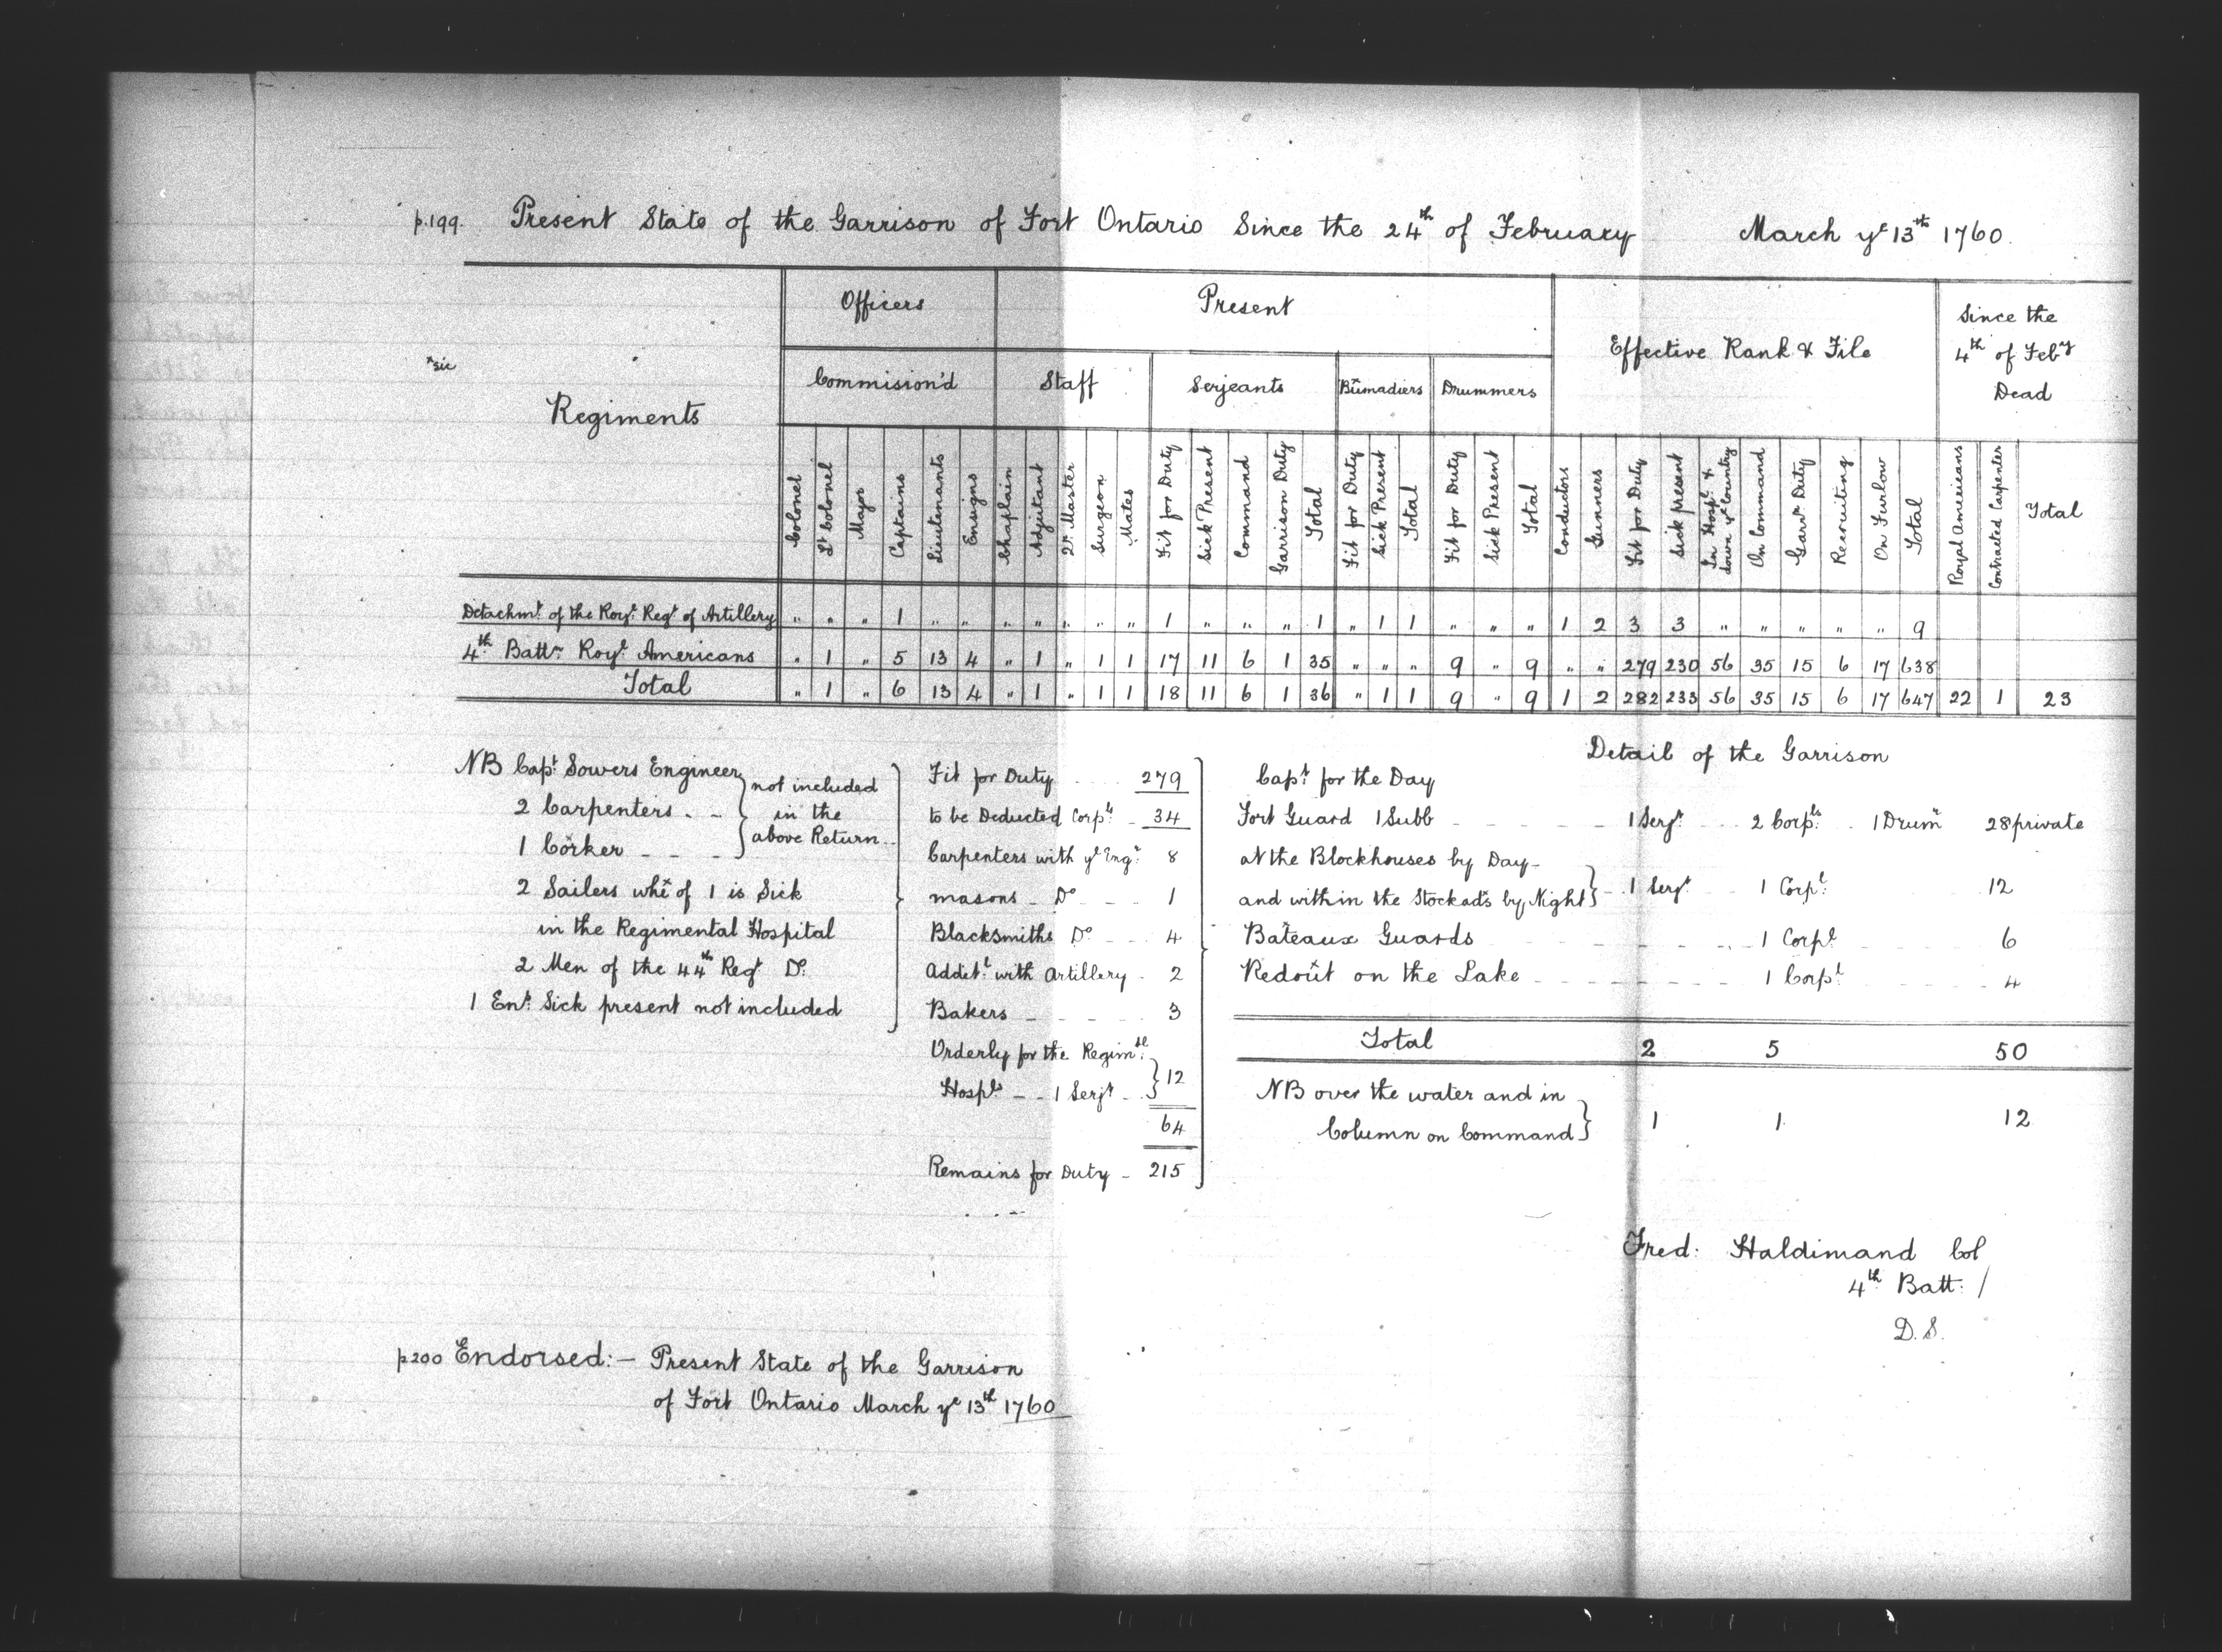 p.199. Present State of the Garrison of Fort Ontario Since the 24th of February March ye 13th 1760.
Officers Present Effective Rank & File Since the 4th of Feby Dead
*sic
Regiments
Commision'd Staff Serjeants Bumadiers Drummers
Colonel Lt Colonel Major Captains Lieutenants Ensigns Chaplain Adjutant Qr. Master Surgeon Mates Fit for Duty Sick Present Command Garrison Duty Total Fit for Duty Sick Present Total Fit for Duty Sick Present Total Conductors Gunners Fit for Duty Sick present In Hospl. & down ye Country On Command Garn. Duty Recruiting On Furlow Total Royal Americans Contracted Carpenter Total
Detachmt. of the Royl. Regt of Artillery " " " 1 " " " " " " " 1 " " " 1 " 1 1 " " " 1 2 3 3 " " " " " 9
4th Battn. Royl. Americans " 1 " 5 13 4 " 1 " 1 1 17 11 6 1 35 " " " 9 " 9 " " 279 230 56 35 15 6 17 638
Total " 1 " 6 13 4 " 1 " 1 1 18 11 6 1 36 " 1 1 9 " 9 1 2 282 233 56 35 15 6 17 647 22 1 23
NB Capt. Sowers Engineer
2 Carpenters
1 Corker
not included
in the
above Return
2 Sailers whe of 1 is Sick
in the Regimental Hospital
2 Men of the 44th Regt Do.
1 Ent. Sick present not included
Fit for Duty 279
to be Deducted Corpls. 34
Carpenters with ye Engr. 8
masons Do 1
Blacksmiths Do 4
Addetl. with Artillery 2
Bakers 3
Orderly for the Regimtl.
Hospls 1 Serjt 12
64
Remains for Duty 215
Detail of the Garrison
Capt. for the Day
Fort Guard 1 Subb 1 Serjt. 2 Corpls. 1 Drumr 28 private
at the Blockhouses by Day
and within the Stockads by Night 1 Serjt 1 Corpl. 12
Bateaux Guards 1 Corpl 6
Redout on the Lake 1 Corpl. 4
Total 2 5 50
NB over the water and in
Column on Command 1 1 12
Fred: Haldimand Col
4th Batt: /
D.S.
p200 Endorsed:- Present State of the Garrison
of Fort Ontario March ye 13th 1760